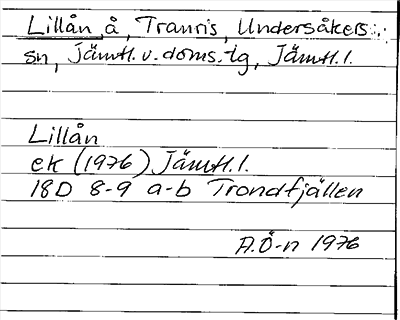 Lillån å, Tranris, Undersåkers
sn, Jämtl. v. doms. tg, Jämtl. l.
Lillån
ek (1976) Jämtl. l.
18D 8-9 a-b Trondfjällen
A.Ö-n 1976